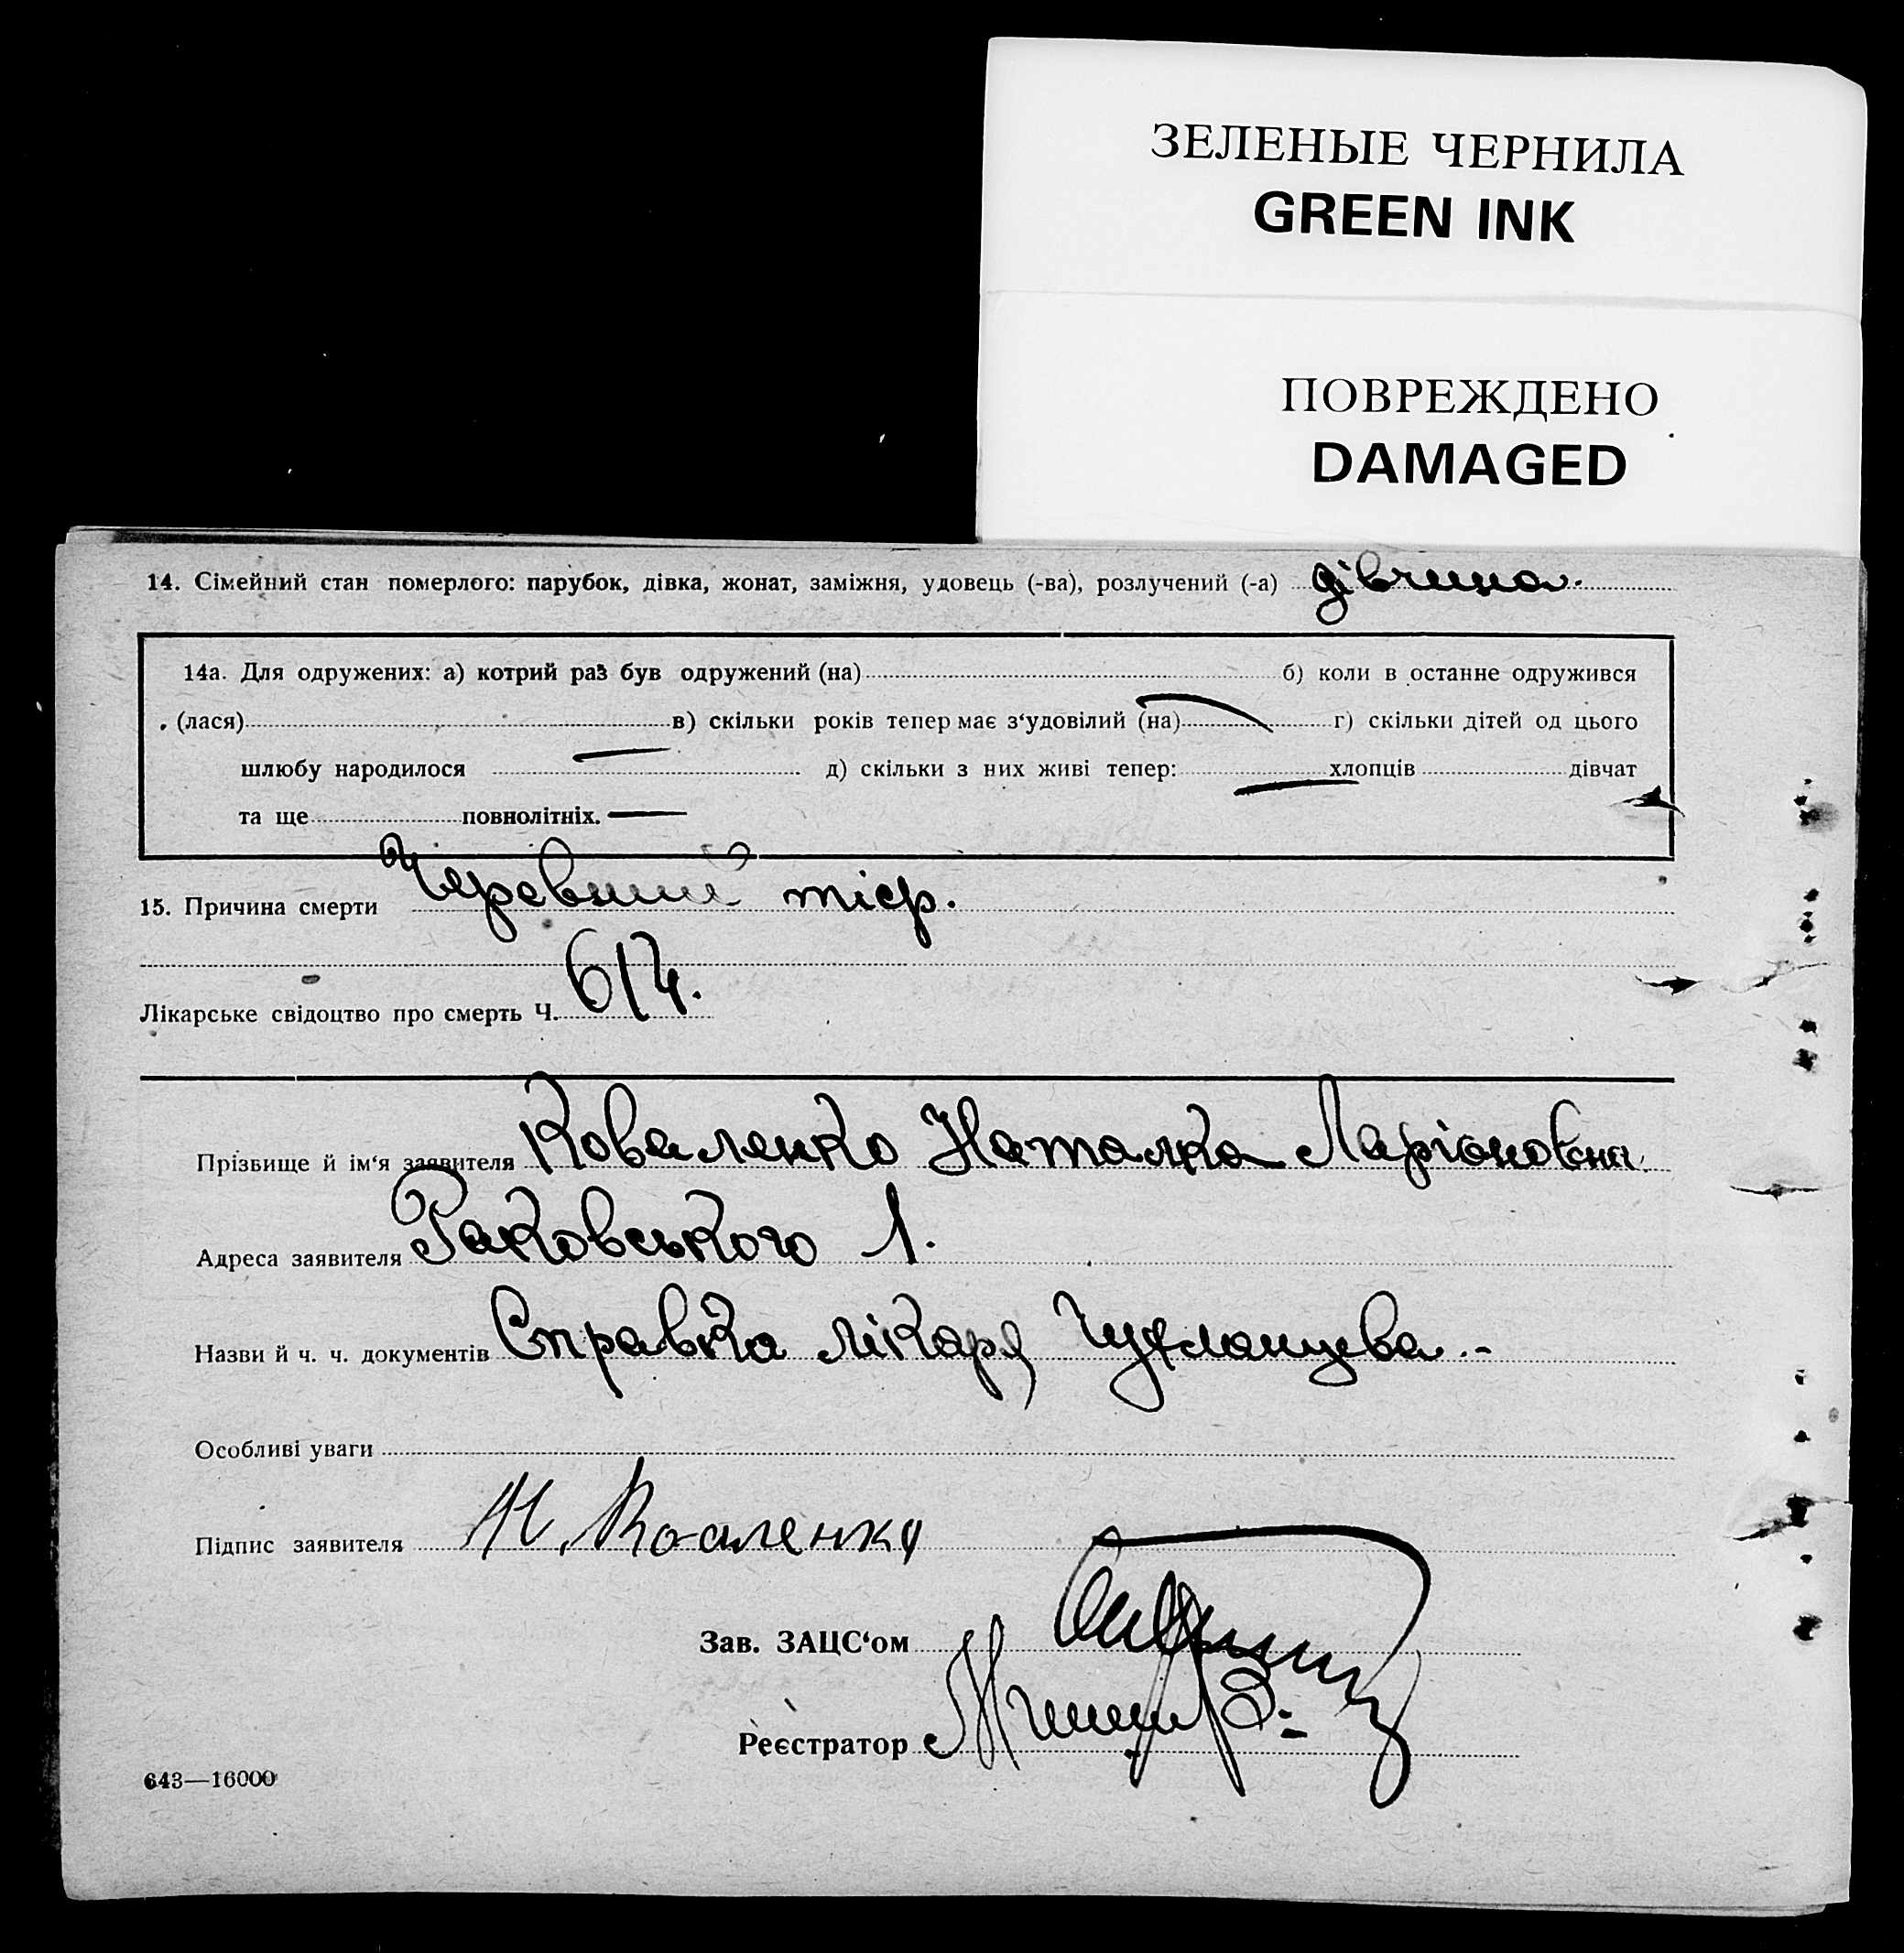 ЗЕЛЕНЫЕ ЧЕРНИЛА
GREEN INK
ПОВРЕЖДЕНО
DAMAGED
14. Сімейний стан померлого: парубок, дівка, жонат, заміжня, удовець (-ва), розлучений (-а) дівчина.
14а. Для одружених: а) котрий раз був одружений (на) б) коли в останне одружився
(лася) в) скільки років тепер має з‘удовілий (на) г) скільки дітей од цього
шлюбу народилося д) скільки з них живі тепер: хлопців дівчат
та ще повнолітніх. —
15. Причина смерти Черевний тіф.
Лікарське свідоцтво про смерть Ч. 6/4.
Прізвище й ім‘я заявителя Коваленко Наталка Ларіоновна
Адреса заявителя Раковського 1.
Назви й ч. ч. документів Справка лікаря
Особливі уваги
Підпис заявителя Н. Коваленко
Зав. ЗАЦС‘ом
Реєстратор
643—16000